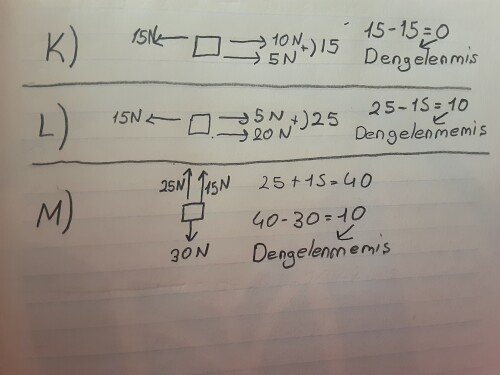 K) 15N 10N 15-15=0
5N +) 15 Dengelenmis
L) 15N 5N +) 25 25-15=10
20N Dengelenmemis
25N 15N 25+15=40
M) 40-30=10
30N Dengelenmemis